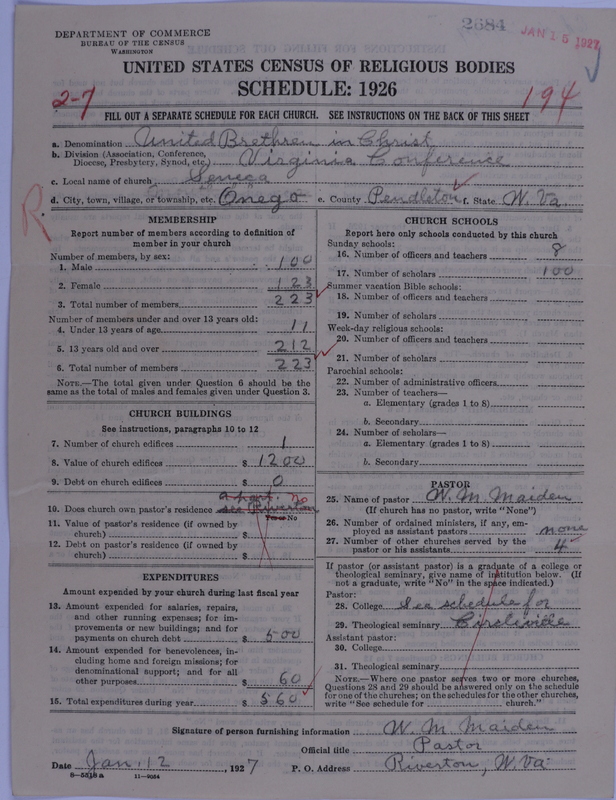 2684
JAN 15 1927
DEPARTMENT OF COMMERCE
BUREAU OF THE CENSUS
WASHINGTON
UNITED STATES CENSUS OF RELIGIOUS BODIES
SCHEDULE: 1926
2-7
194
FILL OUT A SEPARATE SCHEDULE FOR EACH CHURCH. SEE INSTRUCTIONS ON THE BACK OF THIS SHEET
a. Denomination United Brethren in Christ
b. Division (Association, Conference, Diocese, Presbytery, Synod, etc.) Virginia Conference
c. Local name of church Seneca
d. City, town, village, or township, etc. Onego e. County Pendleton f. State W. Va.
R
MEMBERSHIP
Report number of members according to definition of member in your church
Number of members, by sex:
1. Male 100
2. Female 123
3. Total number of members 223
Number of members under and over 13 years old:
4. Under 13 years of age 11
5. 13 years old and over 212
6. Total number of members 223
NOTE.—The total given under Question 6 should be the same as the total of males and females given under Question 3.
CHURCH BUILDINGS
See instructions, paragraphs 10 to 12
7. Number of church edifices 1
8. Value of church edifices $ 1200
9. Debt on church edifices $ 0
a part no
10. Does church own pastor's residence see Riverton
Yes or No
11. Value of pastor's residence (if owned by church) $
12. Debt on pastor's residence (if owned by church) $
EXPENDITURES
Amount expended by your church during last fiscal year
13. Amount expended for salaries, repairs, and other running expenses; for improvements or new buildings; and for payments on church debt $ 500
14. Amount expended for benevolences, including home and foreign missions; for denominational support; and for all other purposes $ 60
15. Total expenditures during year $ 560
CHURCH SCHOOLS
Report here only schools conducted by this church
Sunday schools:
16. Number of officers and teachers 8
17. Number of scholars 100
Summer vacation Bible schools:
18. Number of officers and teachers
19. Number of scholars
Week-day religious schools:
20. Number of officers and teachers
21. Number of scholars
Parochial schools:
22. Number of administrative officers
23. Number of teachers—
a. Elementary (grades 1 to 8)
b. Secondary
24. Number of scholars—
a. Elementary (grades 1 to 8)
b. Secondary
PASTOR
25. Name of pastor W. M. Maiden
(If church has no pastor, write "None")
26. Number of ordained ministers, if any, employed as assistant pastors none
27. Number of other churches served by the pastor or his assistants 4
If pastor (or assistant pastor) is a graduate of a college or theological seminary, give name of institution below. (If not a graduate, write "No" in the space indicated.)
Pastor:
28. College See schedule for
29. Theological seminary Circleville
Assistant pastor:
30. College
31. Theological seminary
NOTE.—Where one pastor serves two or more churches, Questions 28 and 29 should be answered only on the schedule for one of the churches; on the schedules for the other churches, write "See schedule for church."
Signature of person furnishing information W. M. Maiden
Official title Pastor
Date Jan. 12, 1927 P. O. Address Riverton, W. Va.
8—5518a 11—9034